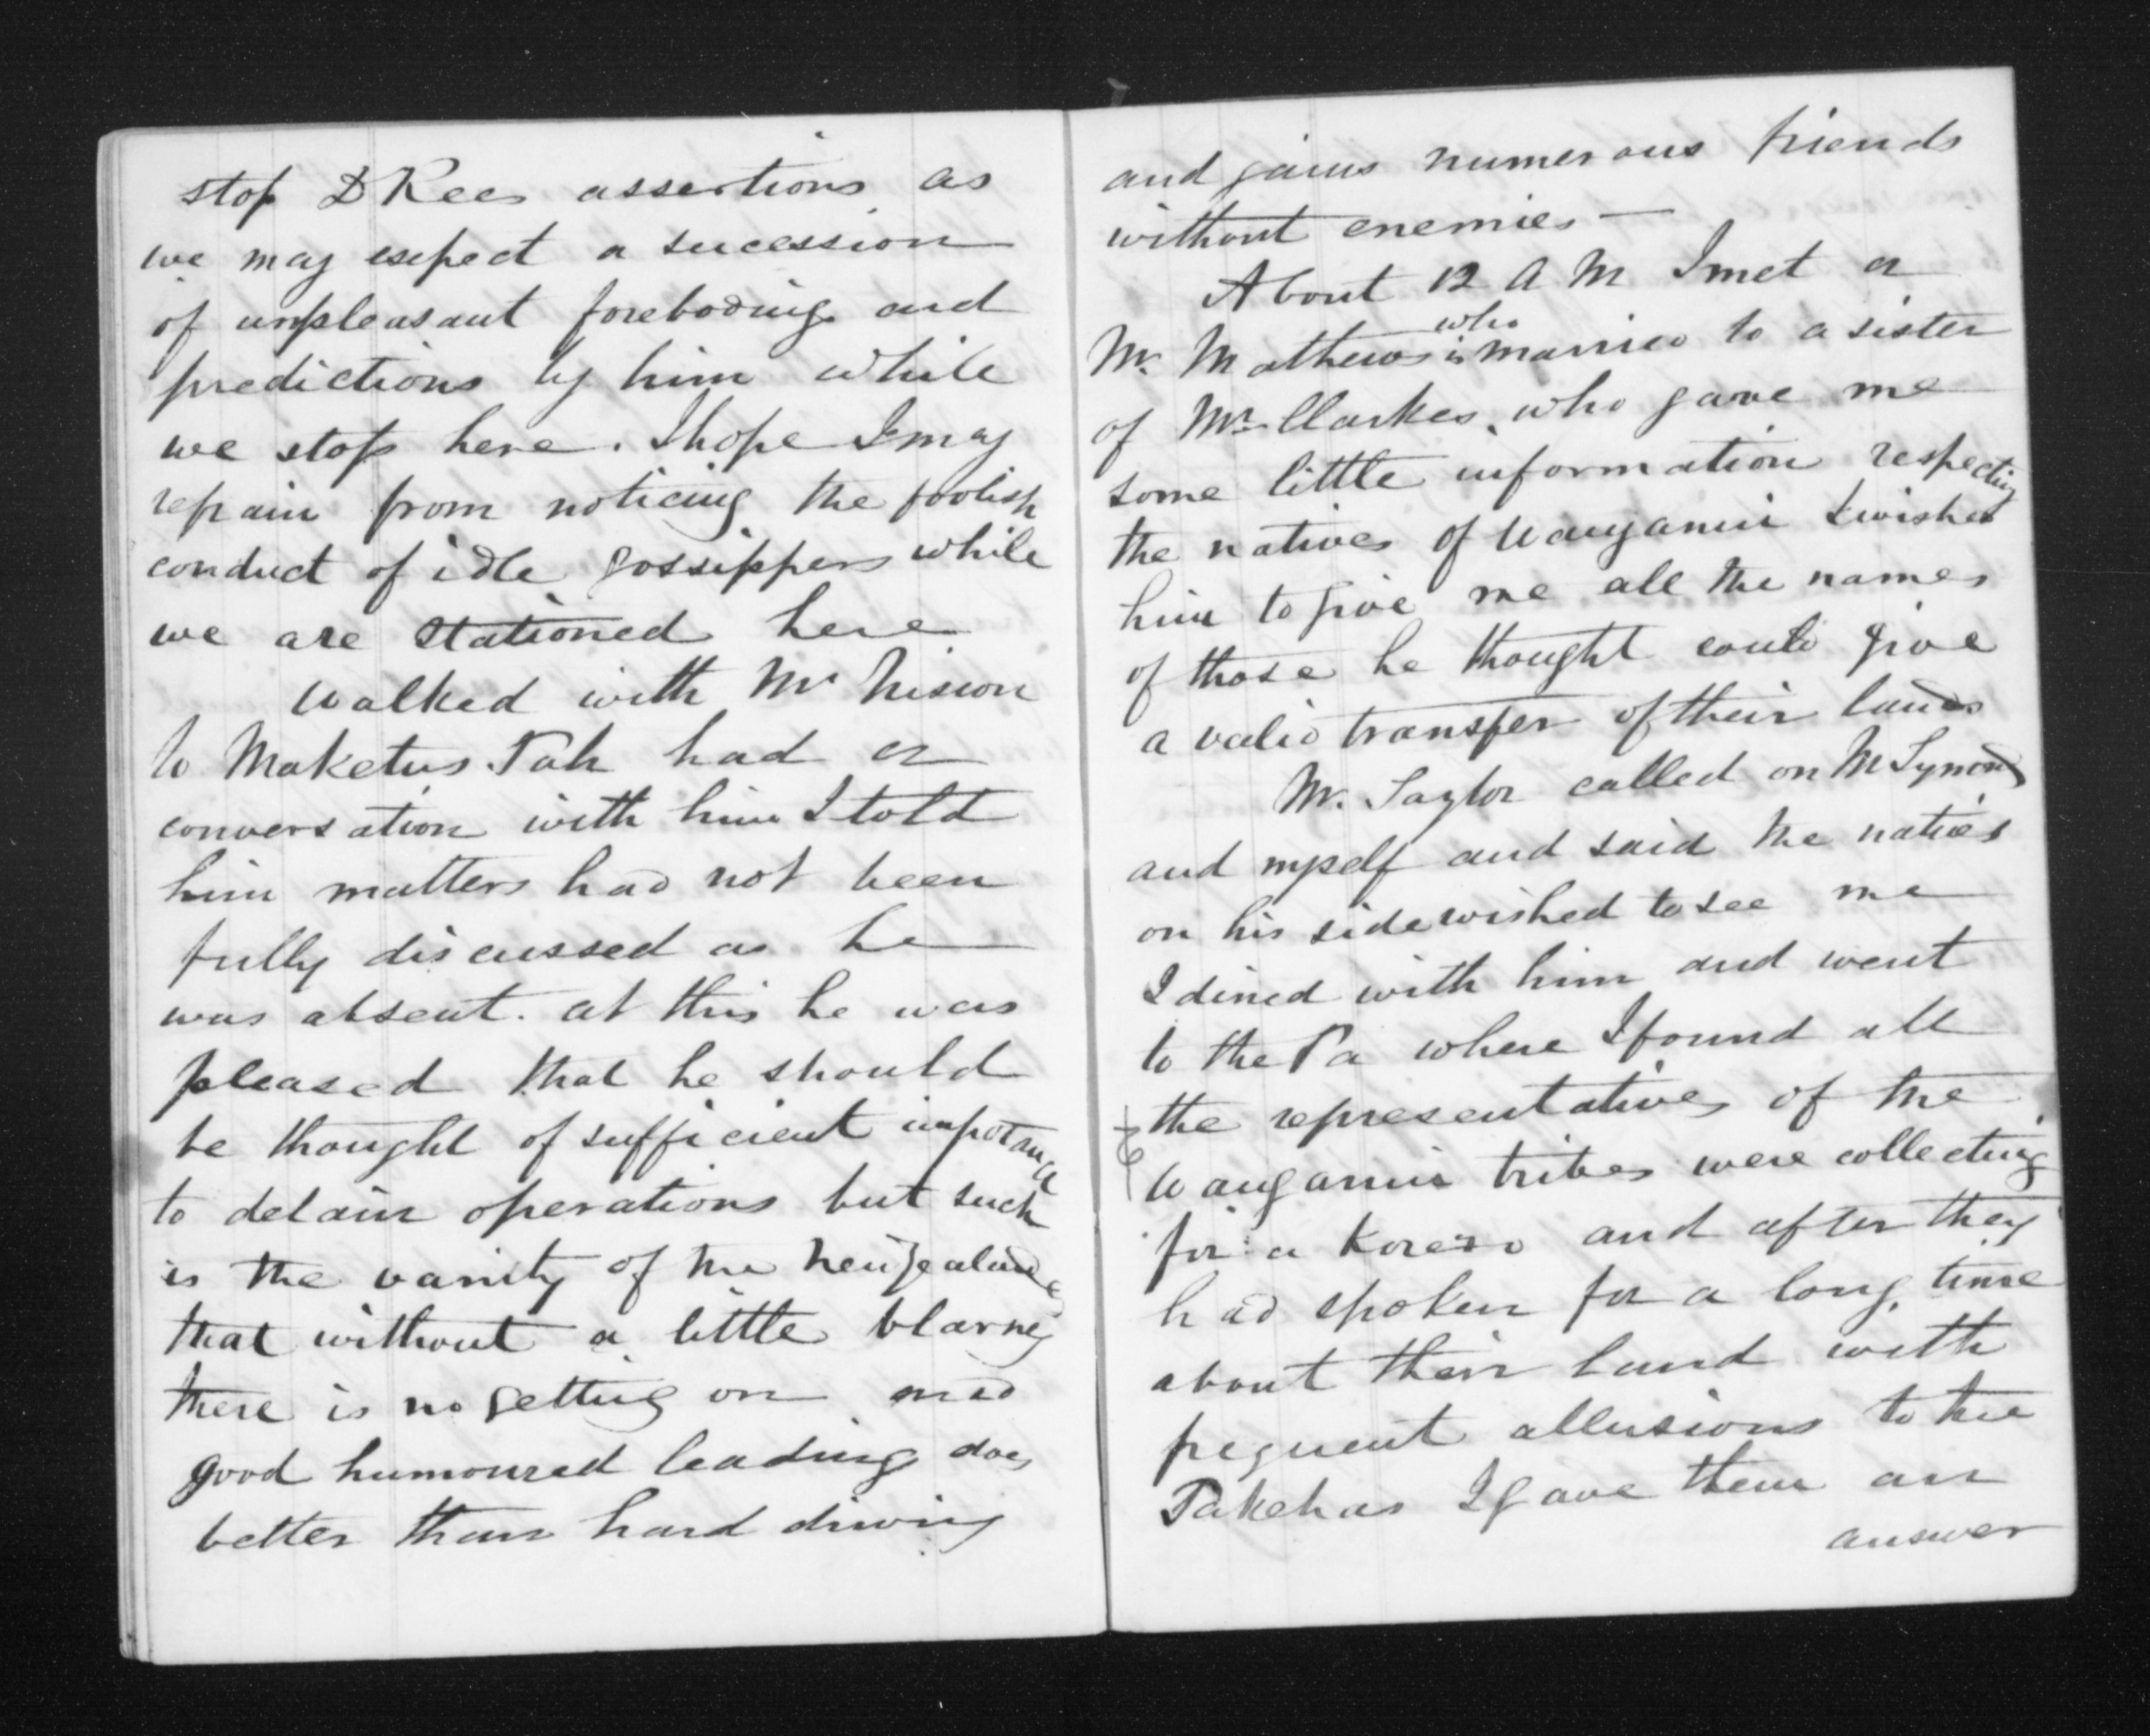 stop D Rees assertions as
we may expect a sucession
of unpleasant foreboding and
predictions by him while
we stop here. I hope I may
refrain from noticing the foolish
conduct of idle gossippers while
we are stationed here
Walked with Mr Nixon
to Maketus Pah had a
conversation with him I told
him matters had not been
fully discussed as he
was absent. at this he was
pleased that he should
be thought of sufficient impotance
to detain operations but such
is the vanity of the New Zealander
that without a little blarney
there is no getting on and
good humoured leading does
better than hard driving
and gains numerous friends
without enemies —
About 12 A M I met a
Mr. Mathews who is married to a sister
of Mr Clarkes, who gave me
some little information respecting
the natives of Wanganui I wished
him to give me all the names
of those he thought could give
a valid transfer of their lands
Mr. Taylor called on Mr Symonds
and myself and said the naties
on his side wished to see me
I dined with him and went
to the Pa where I found all
the representatives of the
Wanganui tribes were collecting
for a Korero and after they
had spoken for a long time
about their land with
frequent allusions to the
Pakehas I gave them an
answer